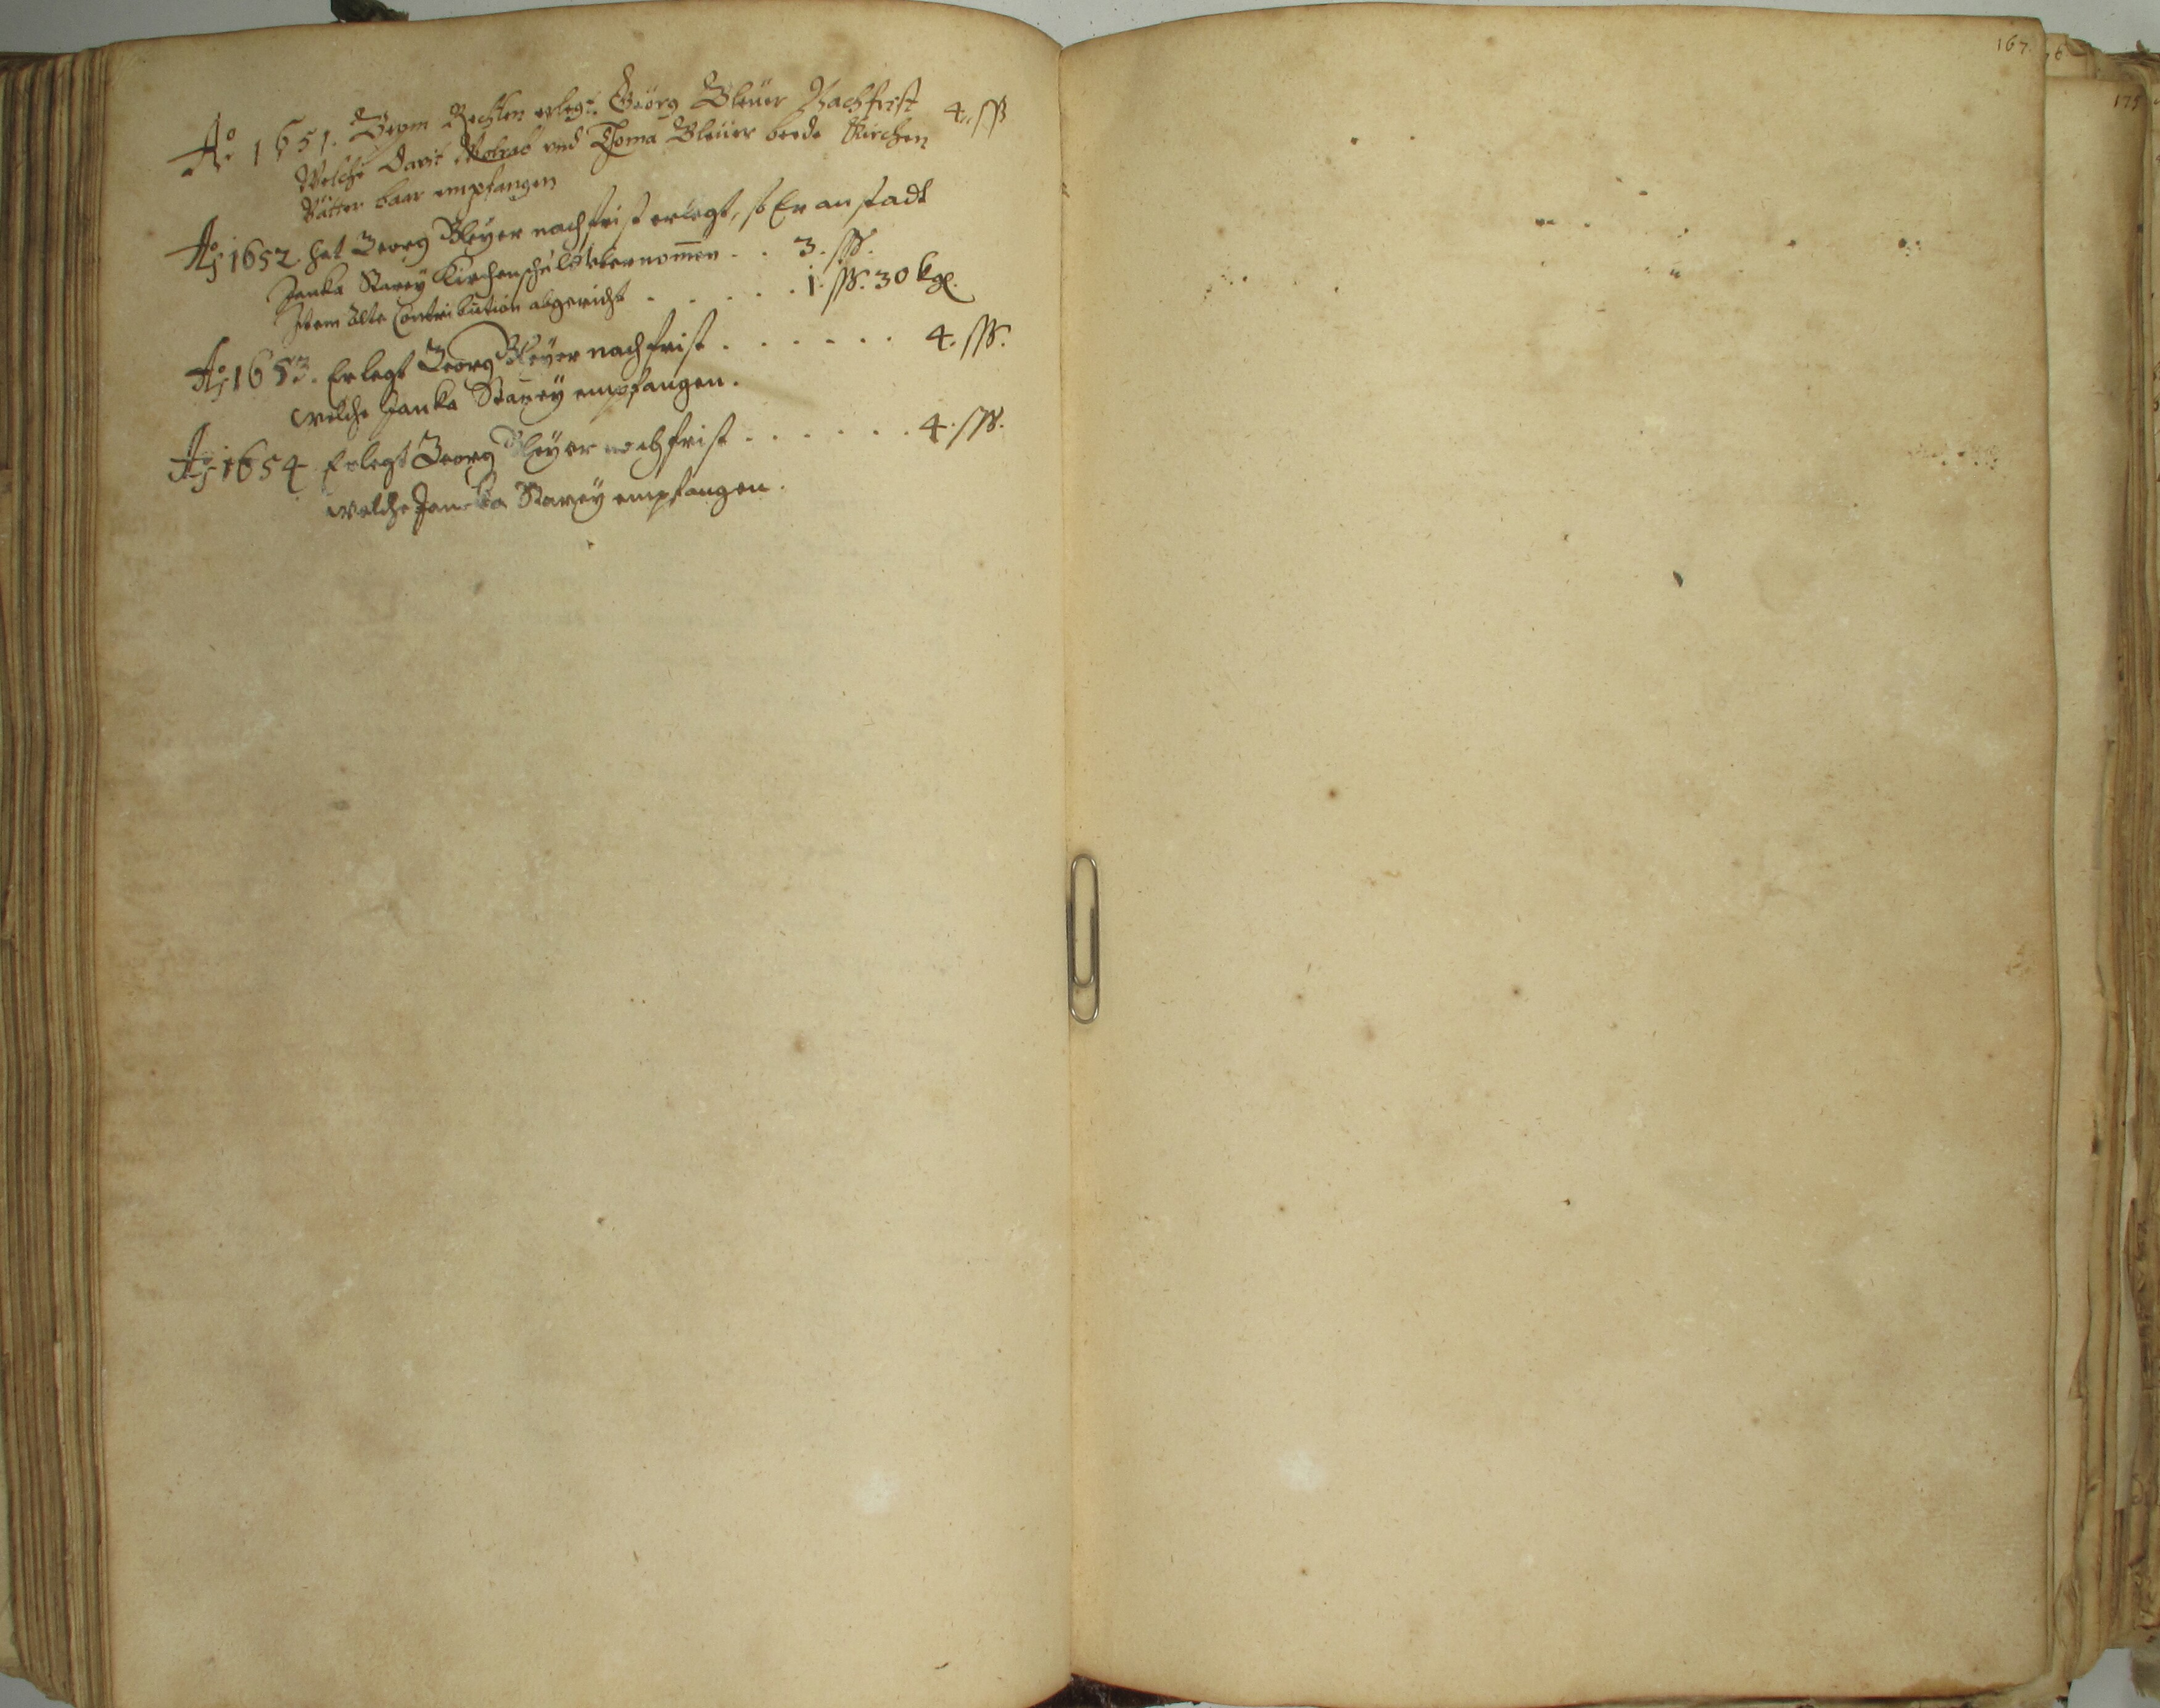 Ao 1651. Beym Rechten erlegt Geörg Bleüer Nachfrist 4. ßß
Welche Davit und Thoma Bleüer beede Kirchen
Vätter baar empfangen
Ao 1652. hat Georg Bleyer nachfrist erlegt, so Er anstadt
Janka Starey Kirchenschuld übernom̄en . . 3. ßß.
Item alte Contribution abgericht . . . . . 1. ßß. 30 kgl.
Ao 1653. Erlegt Georg Bleyer nachfrist . . . . . . 4. ßß.
welche Janka Starey empfangen.
Ao 1654 Erlegt Georg Bleyer nachfrist . . . . . . 4. ßß.
welche Janka Starey empfangen.
167.
175